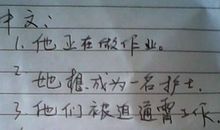 中文：
1. 他正在做作业。
2 她想成为一名护士.
3. 他们被迫通宵工作.